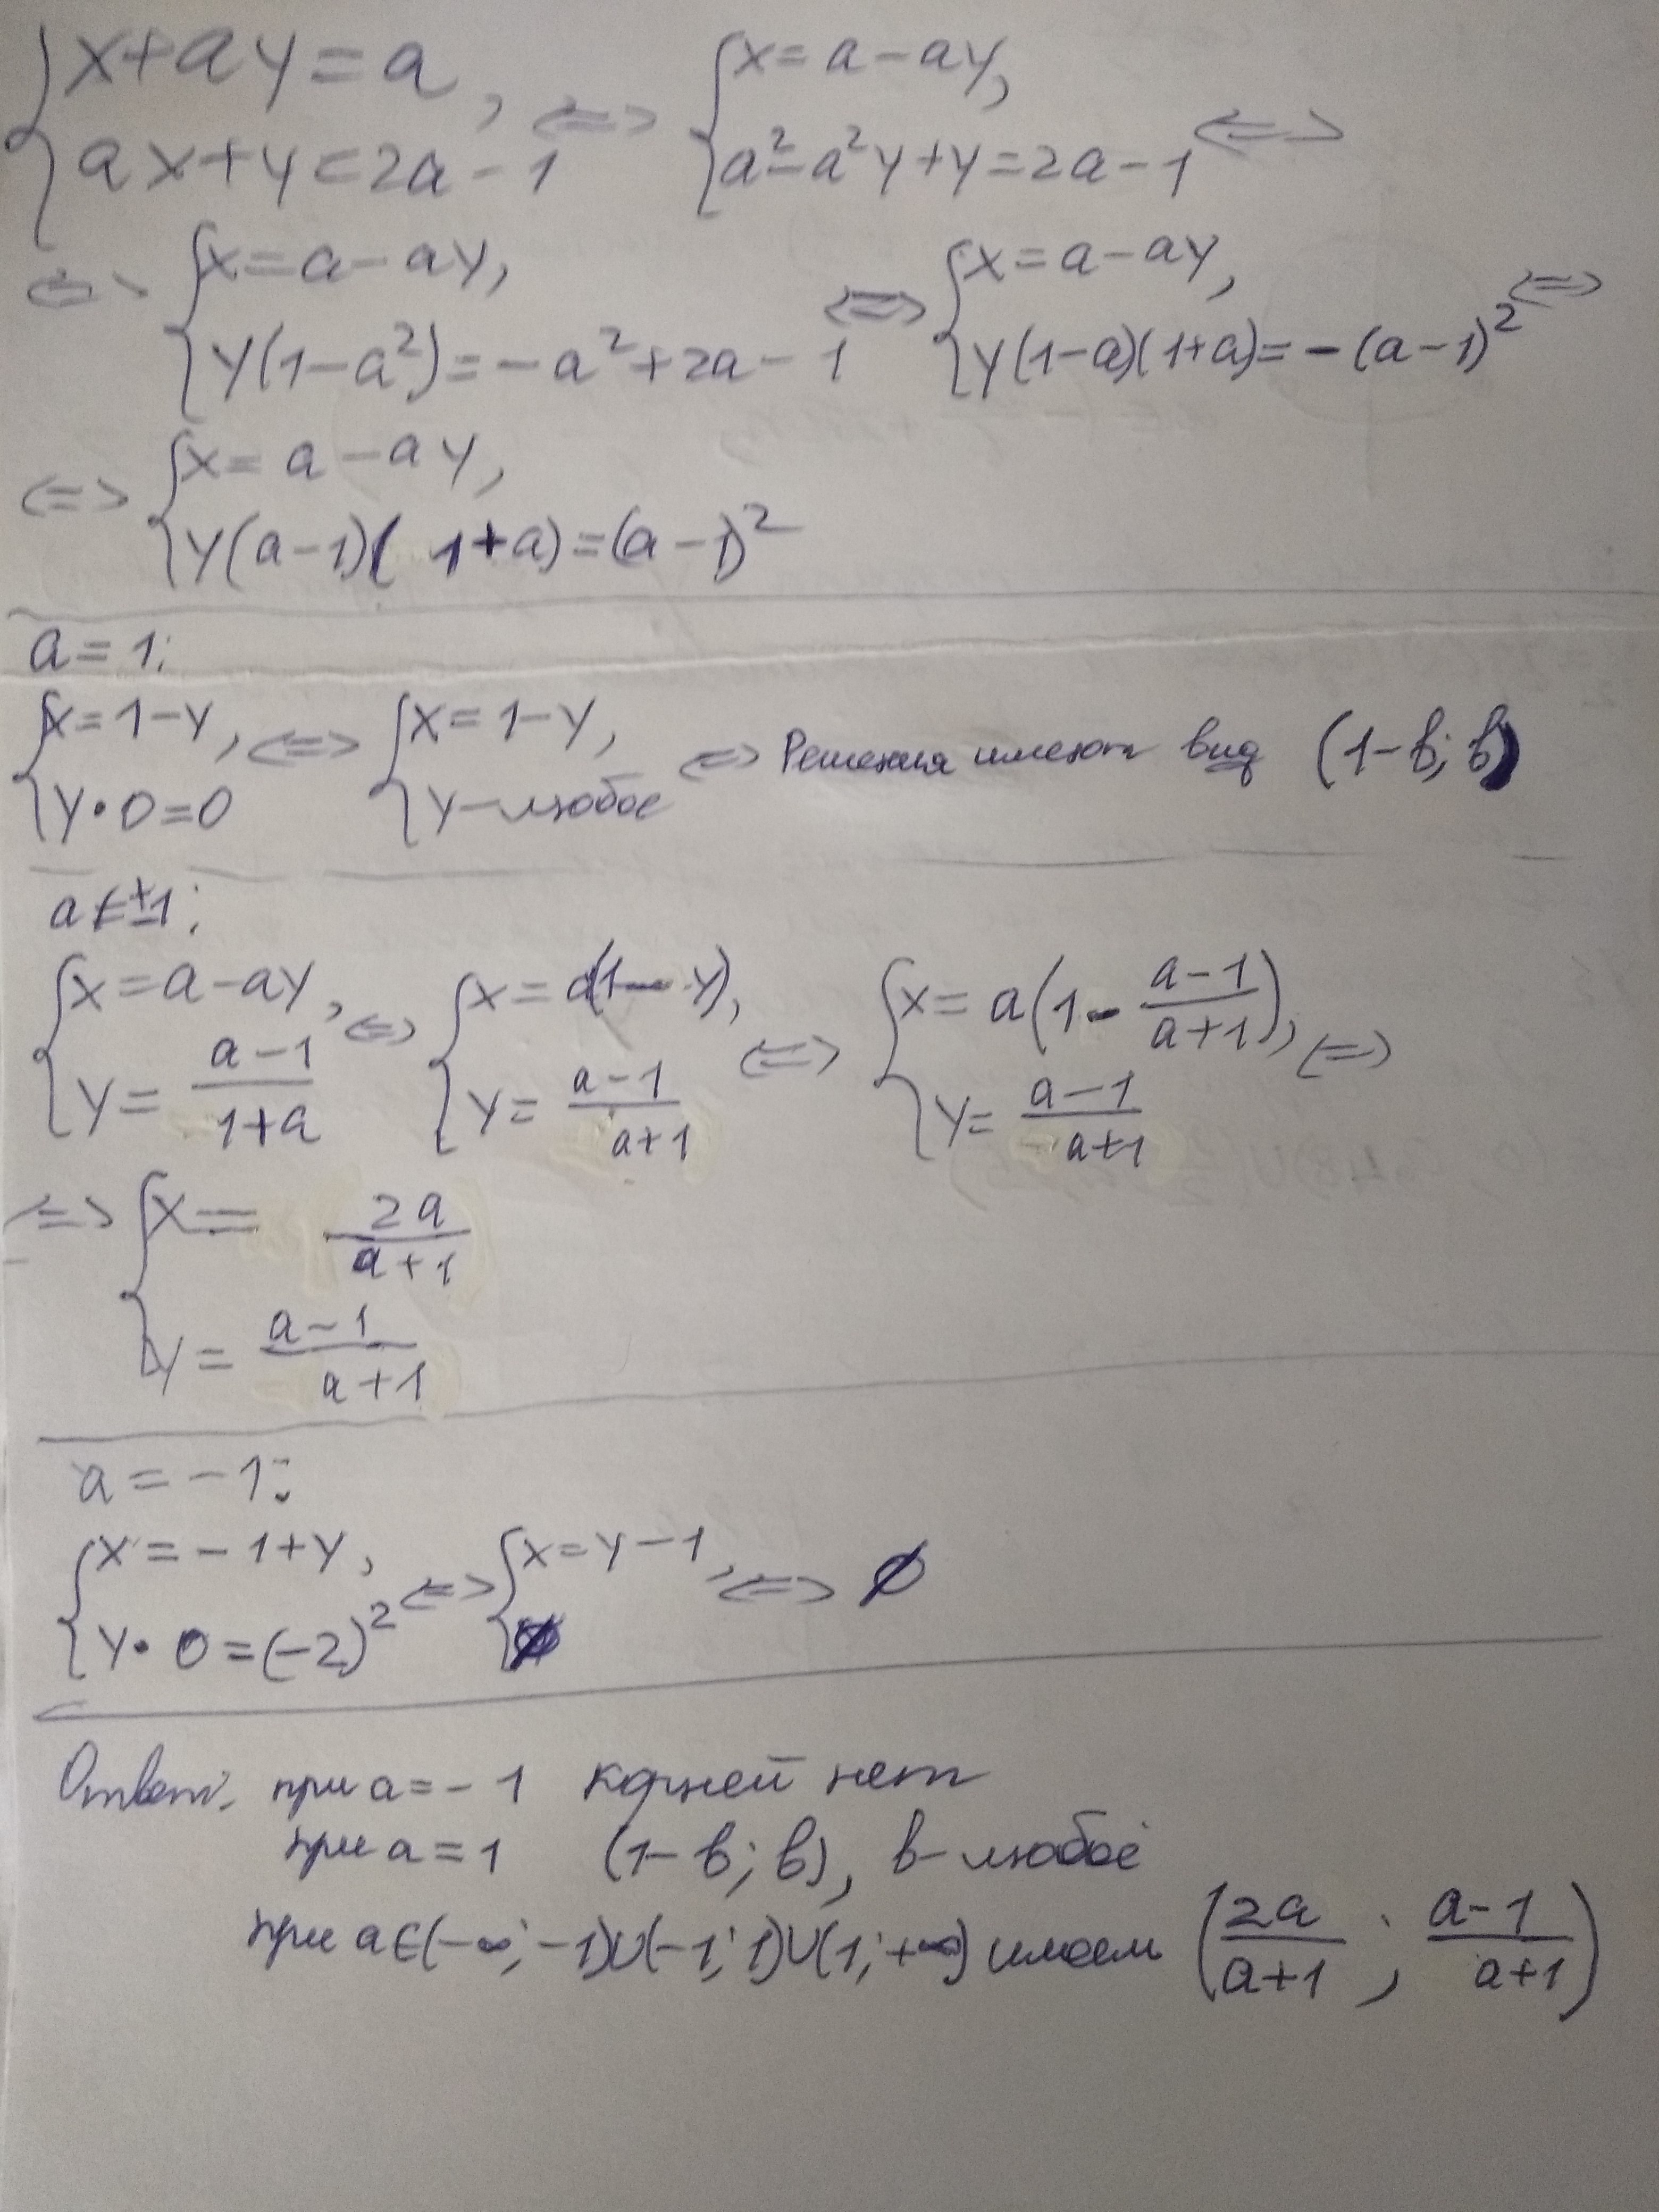 {x+ay=a, ax+y=2a-1 <=> {x=a-ay, a²-a²y+y=2a-1 <=>
<=> {x=a-ay, y(1-a²)=-a²+2a-1 <=> {x=a-ay, y(1-a)(1+a)=-(a-1)² <=>
<=> {x=a-ay, y(a-1)(1+a)=(a-1)²
a=1:
{x=1-y, y·0=0 <=> {x=1-y, y-любое <=> Решения имеют вид (1-b; b)
a≠±1:
{x=a-ay, y=(a-1)/(1+a) <=> {x=a(1-y), y=(a-1)/(a+1) <=> {x=a(1-(a-1)/(a+1)), y=(a-1)/(a+1) <=>
<=> {x=2a/(a+1), y=(a-1)/(a+1)
a=-1:
{x=-1+y, y·0=(-2)² <=> {x=y-1, ∅ <=> ∅
Ответ: при a=-1 корней нет
при a=1 (1-b; b), b-любое
при a∈(-∞;-1)∪(-1;1)∪(1;+∞) имеем (2a/(a+1); (a-1)/(a+1))